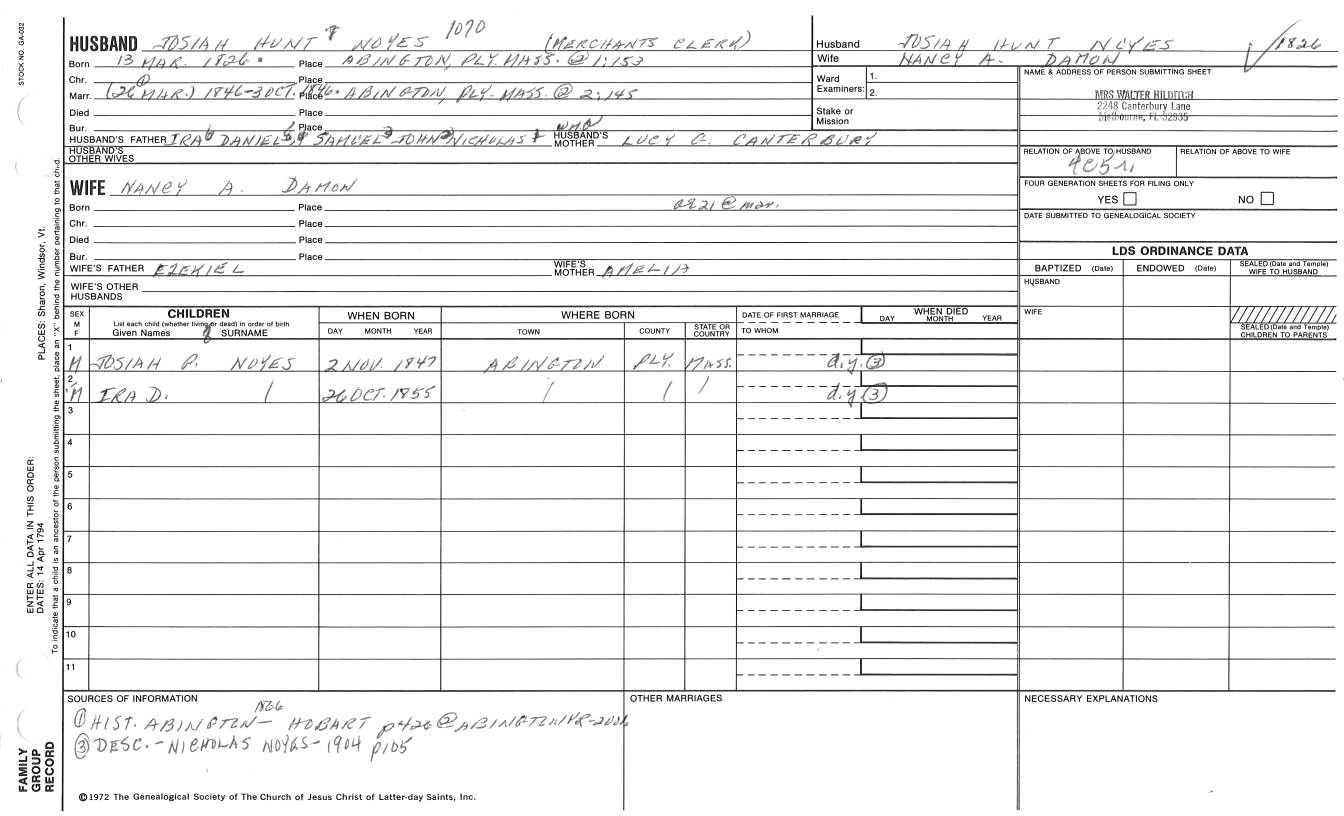 STOCK NO. GA-032
HUSBAND JOSIAH HUNT 8 NOYES 1070 (MERCHANTS CLERK)
Born 13 MAR. 1826 Place ABINGTON, PLY. MASS. @ 1:153
Chr. Place
Marr. (26 MAR.) 1846-3 OCT. 1846 Place ABINGTON, PLY. MASS. @ 2:145
Died Place
Bur. Place
HUSBAND'S FATHER IRA DANIEL SAMUEL JOHN NICHOLAS HUSBAND'S MOTHER LUCY G. CANTERBURY
HUSBAND'S OTHER WIVES
Husband JOSIAH HUNT NOYES 1826
Wife NANCY A. DAMON
Ward Examiners: 1.
2.
Stake or Mission
NAME & ADDRESS OF PERSON SUBMITTING SHEET
MRS WALTER HILDITCH
2248 Canterbury Lane
Melbourne, FL 32935
RELATION OF ABOVE TO HUSBAND RELATION OF ABOVE TO WIFE
4C5r
FOUR GENERATION SHEETS FOR FILING ONLY
YES NO
DATE SUBMITTED TO GENEALOGICAL SOCIETY
WIFE NANCY A. DAMON
Born Place ae 21 @ mar.
Chr. Place
Died Place
Bur. Place
WIFE'S FATHER EZEKIEL WIFE'S MOTHER AMELIA
WIFE'S OTHER HUSBANDS
LDS ORDINANCE DATA
BAPTIZED (Date) ENDOWED (Date) SEALED (Date and Temple) WIFE TO HUSBAND
HUSBAND
WIFE
SEALED (Date and Temple) CHILDREN TO PARENTS
SEX M F CHILDREN WHEN BORN WHERE BORN DATE OF FIRST MARRIAGE WHEN DIED
List each child (whether living or dead) in order of birth
Given Names SURNAME DAY MONTH YEAR TOWN COUNTY STATE OR COUNTRY TO WHOM DAY MONTH YEAR
1 M JOSIAH P. NOYES 2 NOV. 1847 ABINGTON PLY. MASS. d.y. 3
2 M IRA D. / 26 OCT. 1855 / / / d.y. 3
3
4
5
6
7
8
9
10
11
SOURCES OF INFORMATION OTHER MARRIAGES NECESSARY EXPLANATIONS
1866
1 HIST. ABINGTON - HOBART p426 @ ABINGTON VR-
3 DESC. - NICHOLAS NOYES - 1904 p105
©1972 The Genealogical Society of The Church of Jesus Christ of Latter-day Saints, Inc.
FAMILY GROUP RECORD
ENTER ALL DATA IN THIS ORDER:
DATES: 14 Apr 1794 PLACES: Sharon, Windsor, Vt.
To indicate that a child is an ancestor of the person submitting the sheet, place an "X" behind the number pertaining to that child.